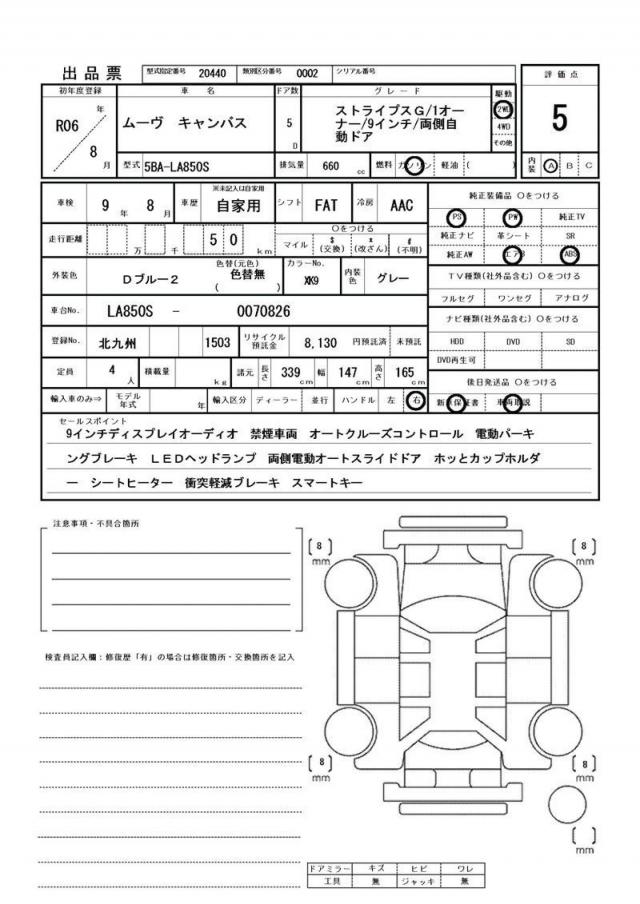 出品票 型式指定番号 20440 類別区分番号 0002 シリアル番号
初年度登録 車名 ドア数 グレード 駆動 評価点
R06 年 8 月 ムーヴ キャンバス 5 D ストライプスG/1オー
ナー/9インチ/両側自
動ドア
2WD
4WD
その他
5
型式 5BA-LA850S 排気量 660 cc 燃料 ガソリン 軽油 ( ) 内装 A B C
車検 9 年 8 月 車歴 ※未記入は自家用 自家用 シフト FAT 冷房 AAC
純正装備品 〇をつける
PS PW 純正TV
走行距離 万 千 5 0 km 〇をつける
マイル $(交換) *(改ざん) #(不明)
純正ナビ 革シート SR
純正AW エアB ABS
外装色 Dブルー2 色替(元色) 色替無 ( ) カラーNo. XK9 内装色 グレー
TV種類(社外品含む) 〇をつける
フルセグ ワンセグ アナログ
車台No. LA850S - 0070826
ナビ種類(社外品含む) 〇をつける
登録No. 北九州 1503 リサイクル預託金 8,130 円預託済 未預託
HDD DVD SD
DVD再生可
定員 4 人 積載量 kg 諸元 長さ 339 cm 幅 147 cm 高さ 165 cm
後日発送品 〇をつける
輸入車のみ⇒ モデル年式 年 輸入区分 ディーラー 並行 ハンドル 左 右
新車保証書 車両取説
セールスポイント
9インチディスプレイオーディオ 禁煙車両 オートクルーズコントロール 電動パーキ
ングブレーキ LEDヘッドランプ 両側電動オートスライドドア ホッとカップホルダ
ー シートヒーター 衝突軽減ブレーキ スマートキー
注意事項・不具合箇所
検査員記入欄：修復歴「有」の場合は修復箇所・交換箇所を記入
[8] mm
[8] mm
[8] mm
[8] mm
[ ] mm
ドアミラー キズ ヒビ ワレ
工具 無 ジャッキ 無